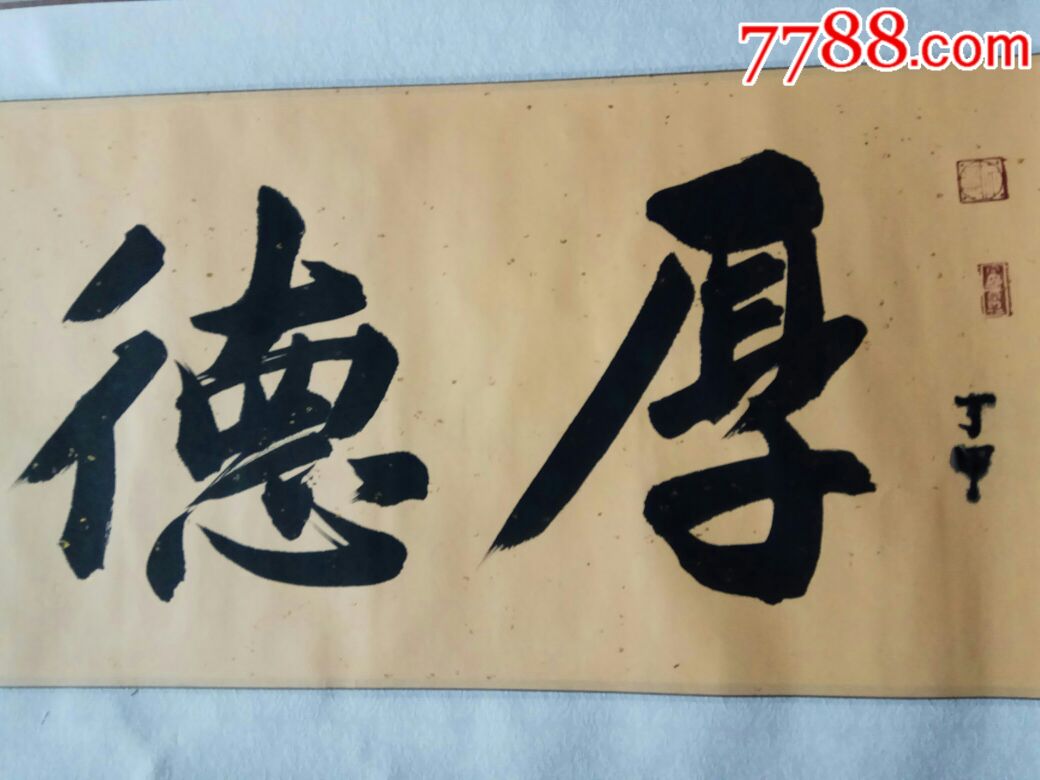 7788.com
丁甲
厚德